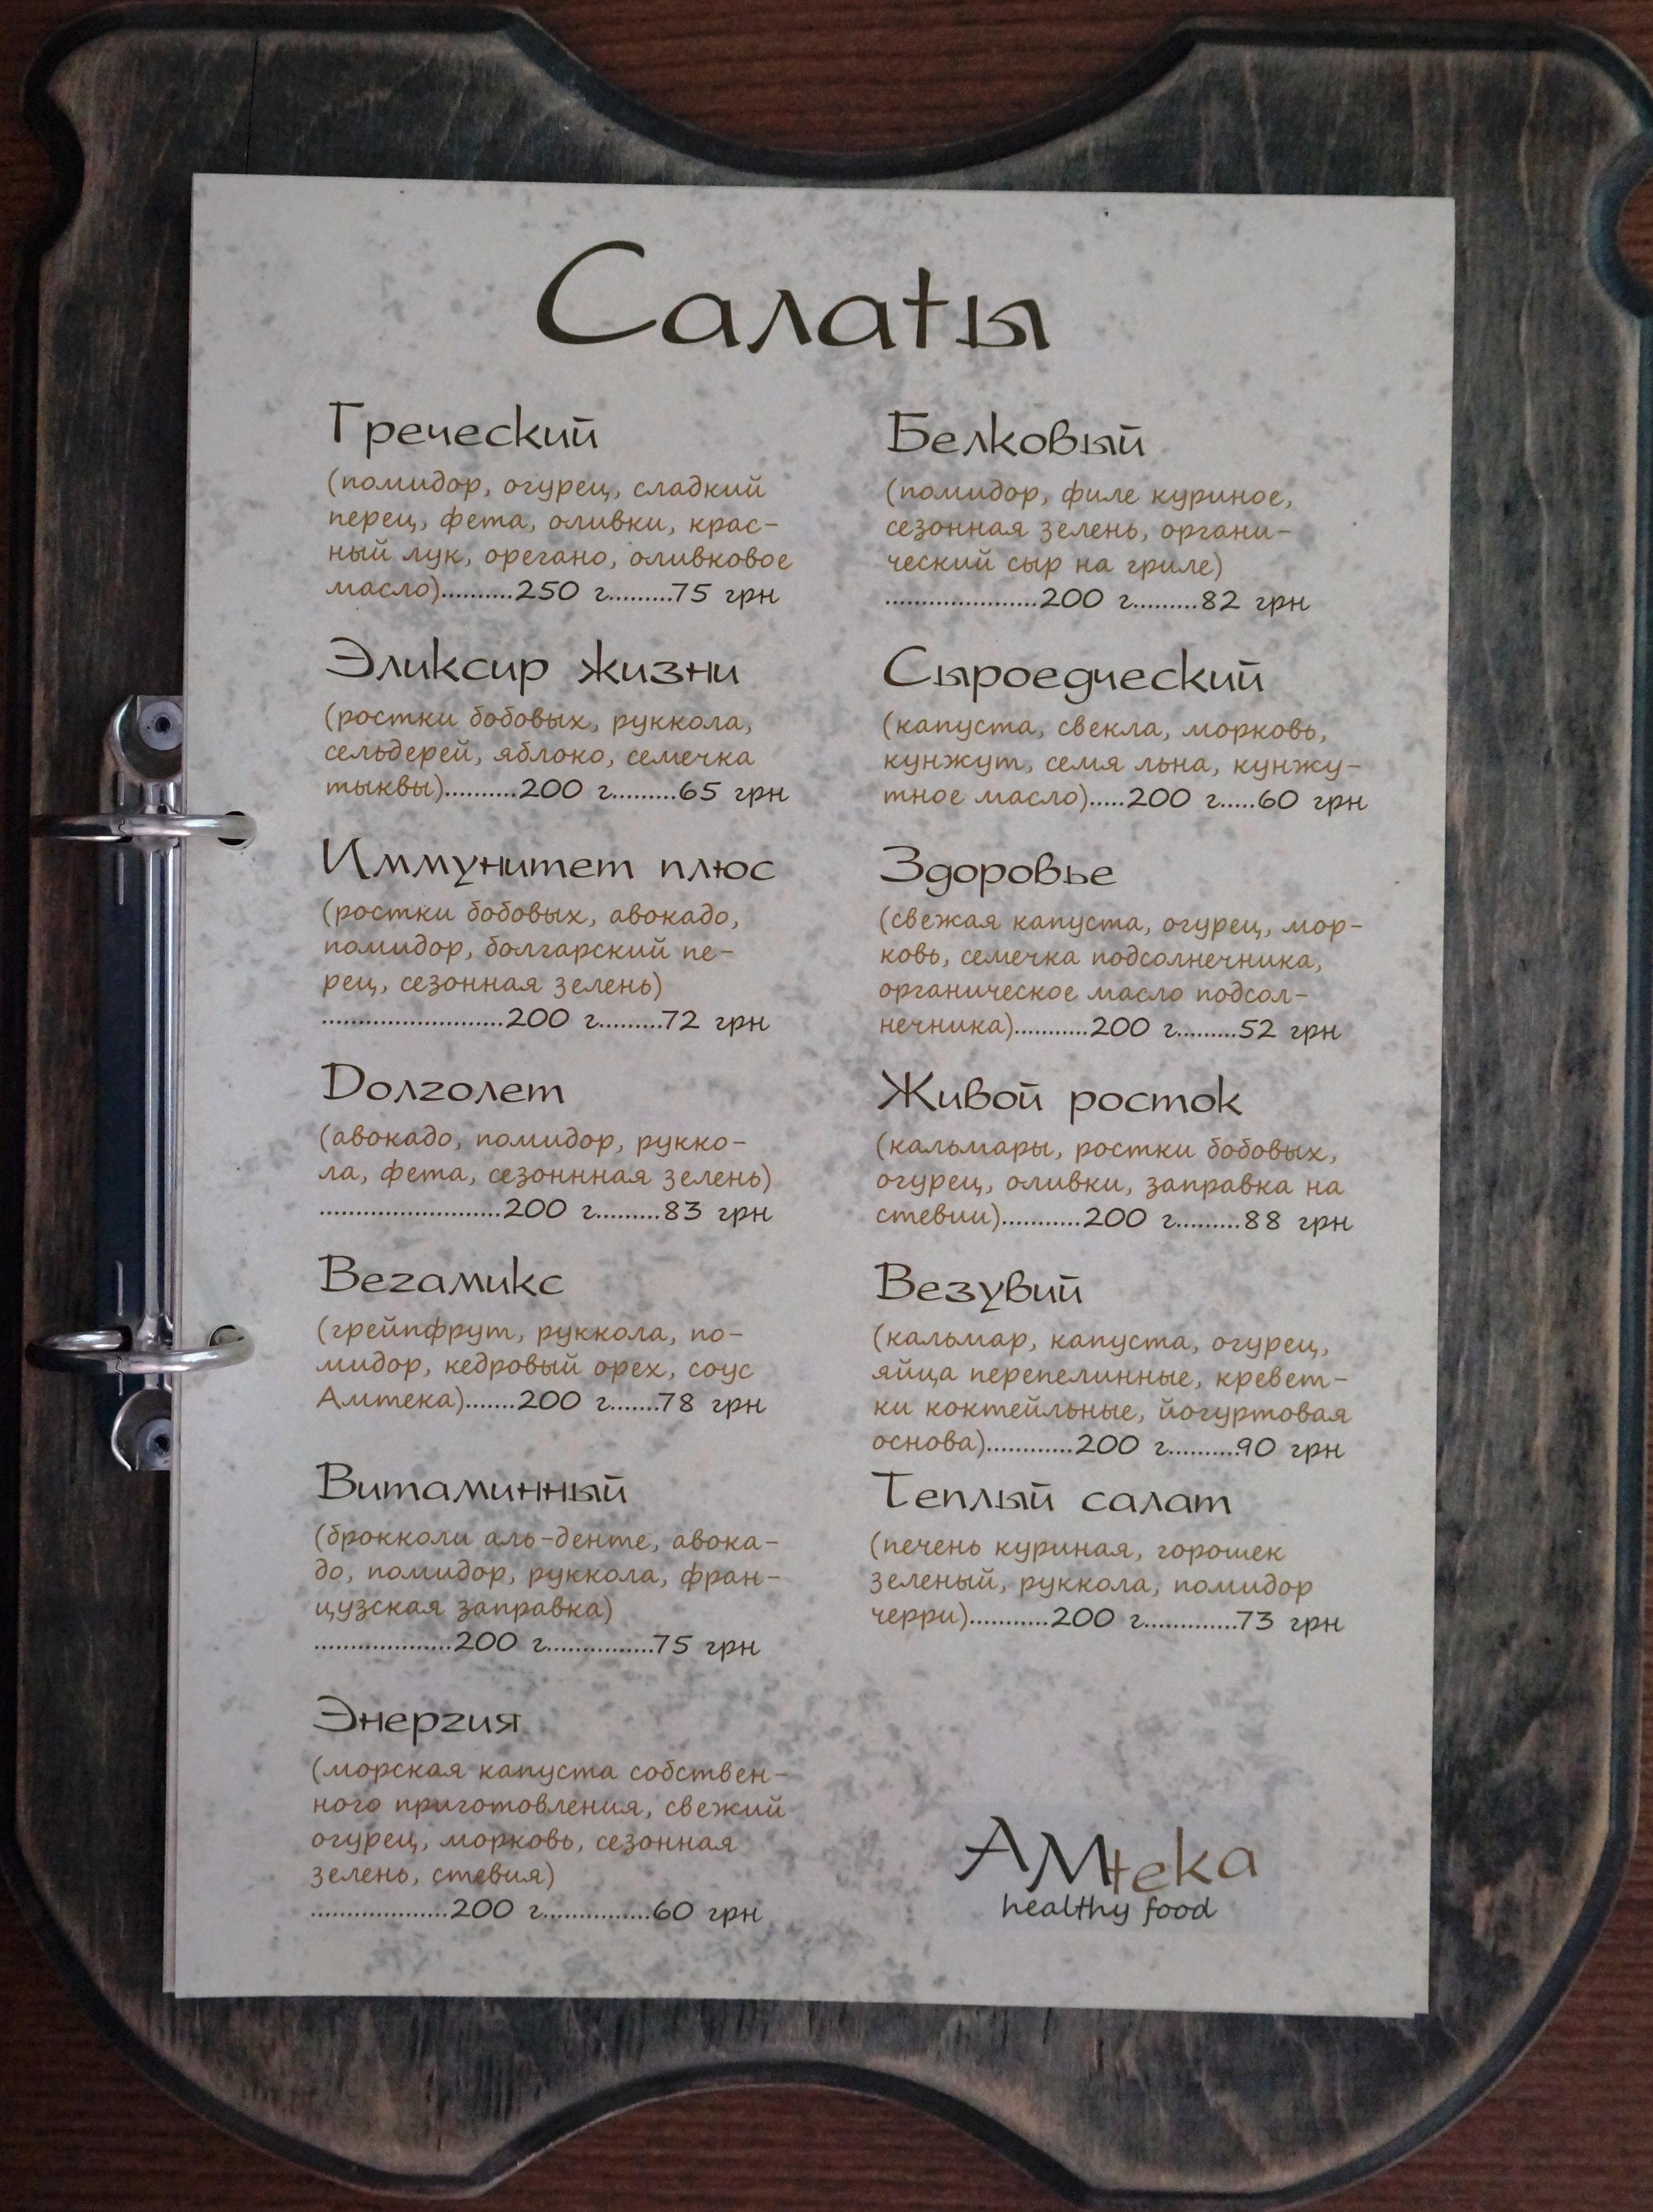 Салаты
Греческий
(помидор, огурец, сладкий
перец, фета, оливки, крас-
ный лук, орегано, оливковое
масло)..........250 г.........75 грн
Эликсир жизни
(ростки бобовых, руккола,
сельдерей, яблоко, семечка
тыквы)..........200 г.........65 грн
Иммунитет плюс
(ростки бобовых, авокадо,
помидор, болгарский пе-
рец, сезонная зелень)
.........................200 г.........72 грн
Долголет
(авокадо, помидор, рукко-
ла, фета, сезоннная зелень)
.........................200 г.........83 грн
Вегамикс
(грейпфрут, руккола, по-
мидор, кедровый орех, соус
Амтека).......200 г.......78 грн
Витаминный
(брокколи аль-денте, авока-
до, помидор, руккола, фран-
цузская заправка)
...................200 г...............75 грн
Энергия
(морская капуста собствен-
ного приготовления, свежий
огурец, морковь, сезонная
зелень, стевия)
...................200 г...............60 грн
Белковый
(помидор, филе куриное,
сезонная зелень, органи-
ческий сыр на гриле)
.....................200 г.........82 грн
Сыроедческий
(капуста, свекла, морковь,
кунжут, семя льна, кунжу-
тное масло).....200 г.....60 грн
Здоровье
(свежая капуста, огурец, мор-
ковь, семечка подсолнечника,
органическое масло подсол-
нечника)..........200 г.........52 грн
Живой росток
(кальмары, ростки бобовых,
огурец, оливки, заправка на
стевии)...........200 г.........88 грн
Везувий
(кальмар, капуста, огурец,
яйца перепелинные, кревет-
ки коктейльные, йогуртовая
основа)............200 г..........90 грн
Теплый салат
(печень куриная, горошек
зеленый, руккола, помидор
черри)...........200 г.............73 грн
АМтека
healthy food